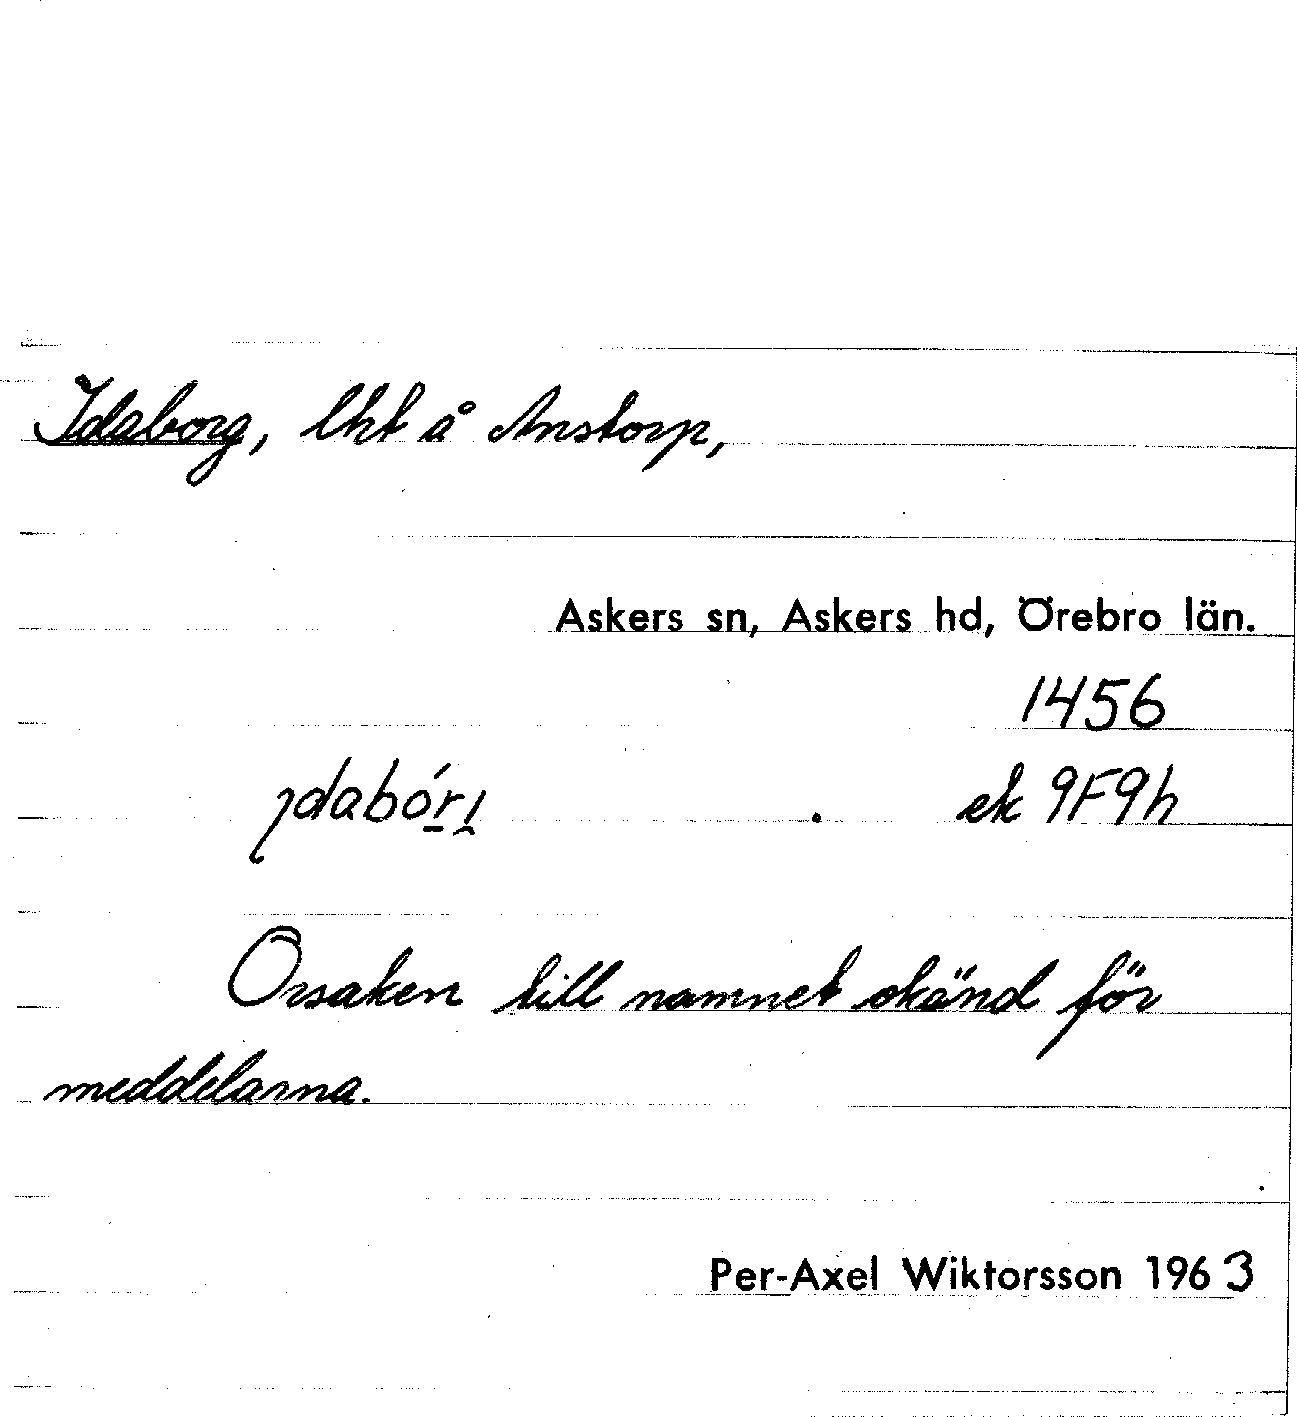 Idaborg, lht å Anstorp,
Askers sn, Askers hd, Örebro län.
1456
ek 9F9h
Orsaken till namnet okänd för
meddelarna.
Per-Axel Wiktorsson 1963